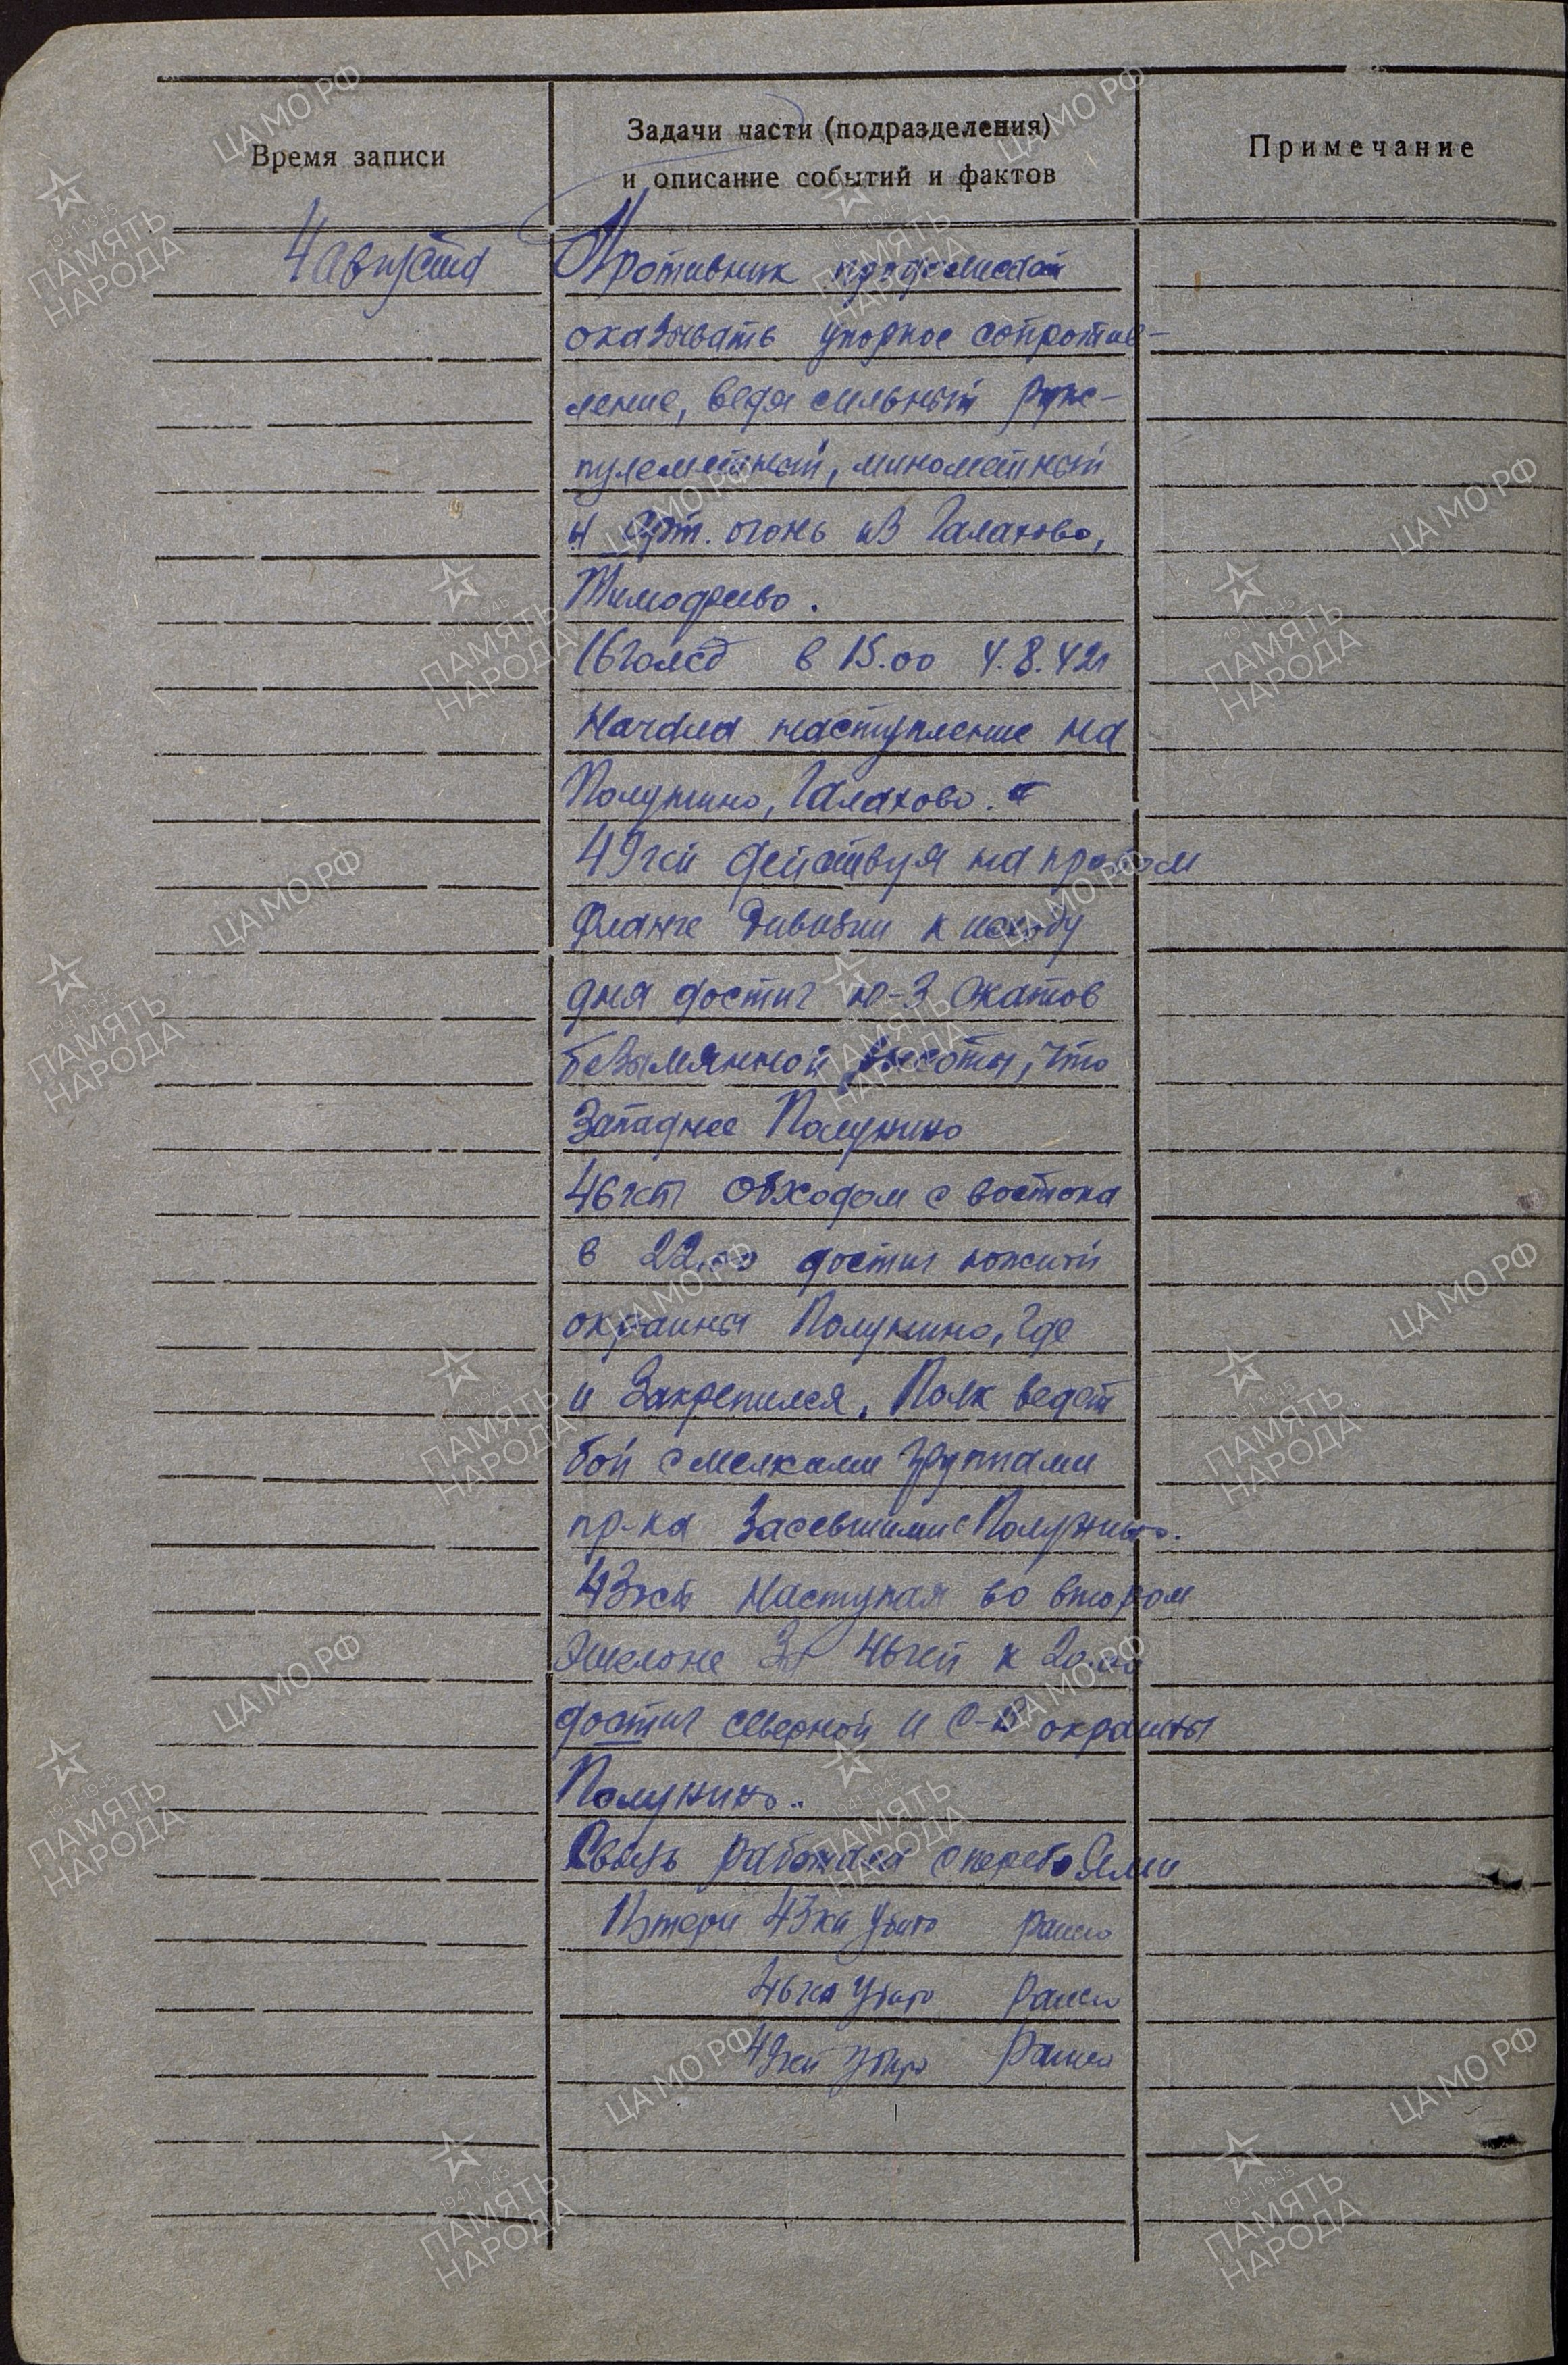 Время записи
Задачи части (подразделения)
и описание событий и фактов
Примечание
4 августа
Противник продолжает
оказывать упорное сопротив-
ление, ведя сильный руж-
пулеметный, минометный
и арт. огонь из Галахово,
Тимофеево.
16 гв
в 15.00 4.8.42г
Начала наступление на
Полунино, Галахово.
49гсп действуя на правом
фланге дивизии к исходу
дня достиг ю-З скатов
безымянной высоты, что
Западнее Полунино
46гсп обходом с востока
в 22.00 достиг южной
окраины Полунино, где
и Закрепился. Полк ведет
бой с мелкими группами
пр-ка Засевшими в Полунино.
43гсп Наступая во втором
Эшелоне За 46гсп к 20.00
достиг северной и С-В окраины
Полунино.
Связь работала с перебоями
Потери 43гсп убито ранено
46гсп убито ранено
49гсп убито ранено
ЦА МО РФ
ПАМЯТЬ
НАРОДА
1941 1945